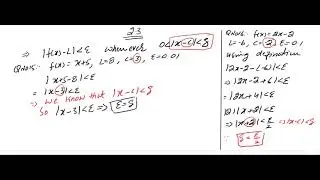 23
⇒ |f(x)-L|<ε whenever 0<|x-c|<δ
QNo15:. f(x)=x+5, L=8, c=3, ε=0.01
|x+5-8|<ε
= |x-3|<ε
⇒ We know that |x-c|<δ
So |x-3|<ε ⇒ ε=δ
QNo16: f(x)=2x-2
L=-6, c=-2, ε=0.1
using defination
|2x-2-(-6)|<ε
⇒ |2x-2+6|<ε
= |2x+4|<ε
|2||x+2|<ε
⇒ |x+2|<ε/2 ⇒ |x-c|<δ
∵ δ=ε/2